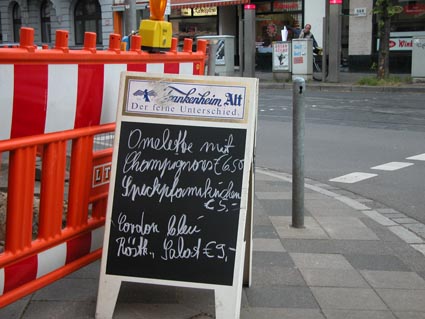 Frankenheim Alt
Der feine Unterschied.
Omelette mit
Champignons €6.50
Speckpfannkuchen
€5,-
Cordon bleu
Rösti, Salat €9,-